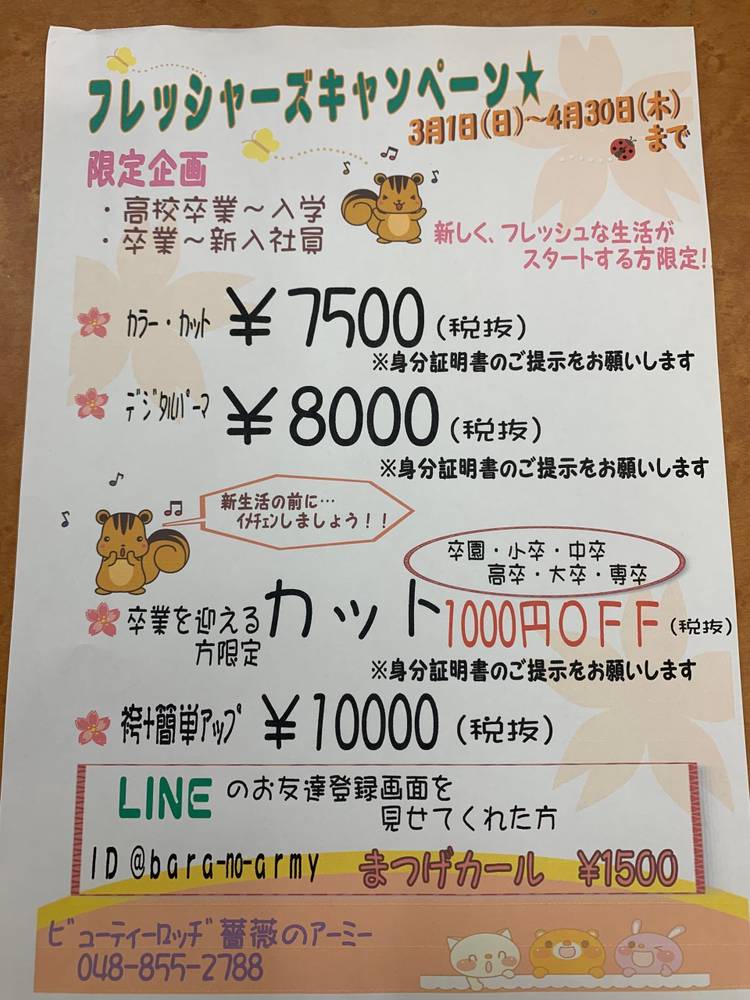 フレッシャーズキャンペーン★
3月1日(日)～4月30日(木)
まで
限定企画
・高校卒業～入学
・卒業～新入社員
新しく、フレッシュな生活が
スタートする方限定!
カラー・カット ￥7500(税抜)
※身分証明書のご提示をお願いします
ﾃﾞｼﾞﾀﾙﾊﾟｰﾏ ￥8000(税抜)
※身分証明書のご提示をお願いします
新生活の前に…
ｲﾒﾁｪﾝしましょう！！
卒園・小卒・中卒
高卒・大卒・専卒
卒業を迎える
方限定
カット1000円OFF(税抜)
※身分証明書のご提示をお願いします
袴+簡単アップ ￥10000(税抜)
LINEのお友達登録画面を
見せてくれた方
ID@bara-no-army まつげカール ¥1500
ビューティーロッヂ薔薇のアーミー
048-855-2788